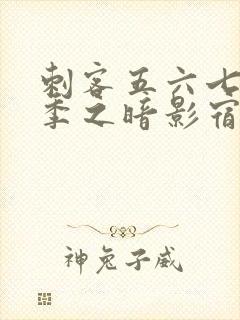 刺客五六七
季之暗影宿
神兔子威